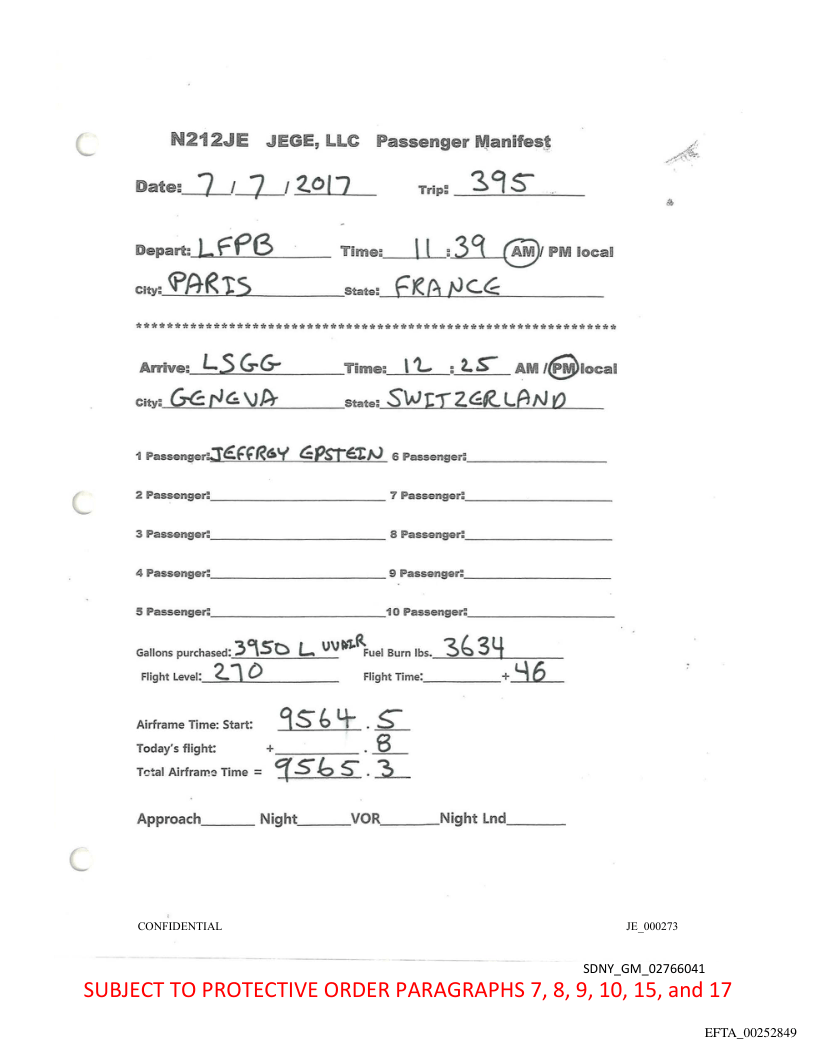 N212JE JEGE, LLC Passenger Manifest
Date: 7 / 7 / 2017 Trip: 395
Depart: LFPB Time: 11 : 39 AM / PM local
City: PARIS State: FRANCE
**************************************************************
Arrive: LSGG Time: 12 : 25 AM / PM local
City: GENEVA State: SWITZERLAND
1 Passenger: JEFFREY EPSTEIN 6 Passenger:
2 Passenger: 7 Passenger:
3 Passenger: 8 Passenger:
4 Passenger: 9 Passenger:
5 Passenger: 10 Passenger:
Gallons purchased: 3950 L UVAIR Fuel Burn lbs. 3634
Flight Level: 270 Flight Time: + 46
Airframe Time: Start: 9564 . 5
Today's flight: + . 8
Total Airframe Time = 9565 . 3
Approach Night VOR Night Lnd
CONFIDENTIAL JE_000273
SDNY_GM_02766041
SUBJECT TO PROTECTIVE ORDER PARAGRAPHS 7, 8, 9, 10, 15, and 17
EFTA_00252849